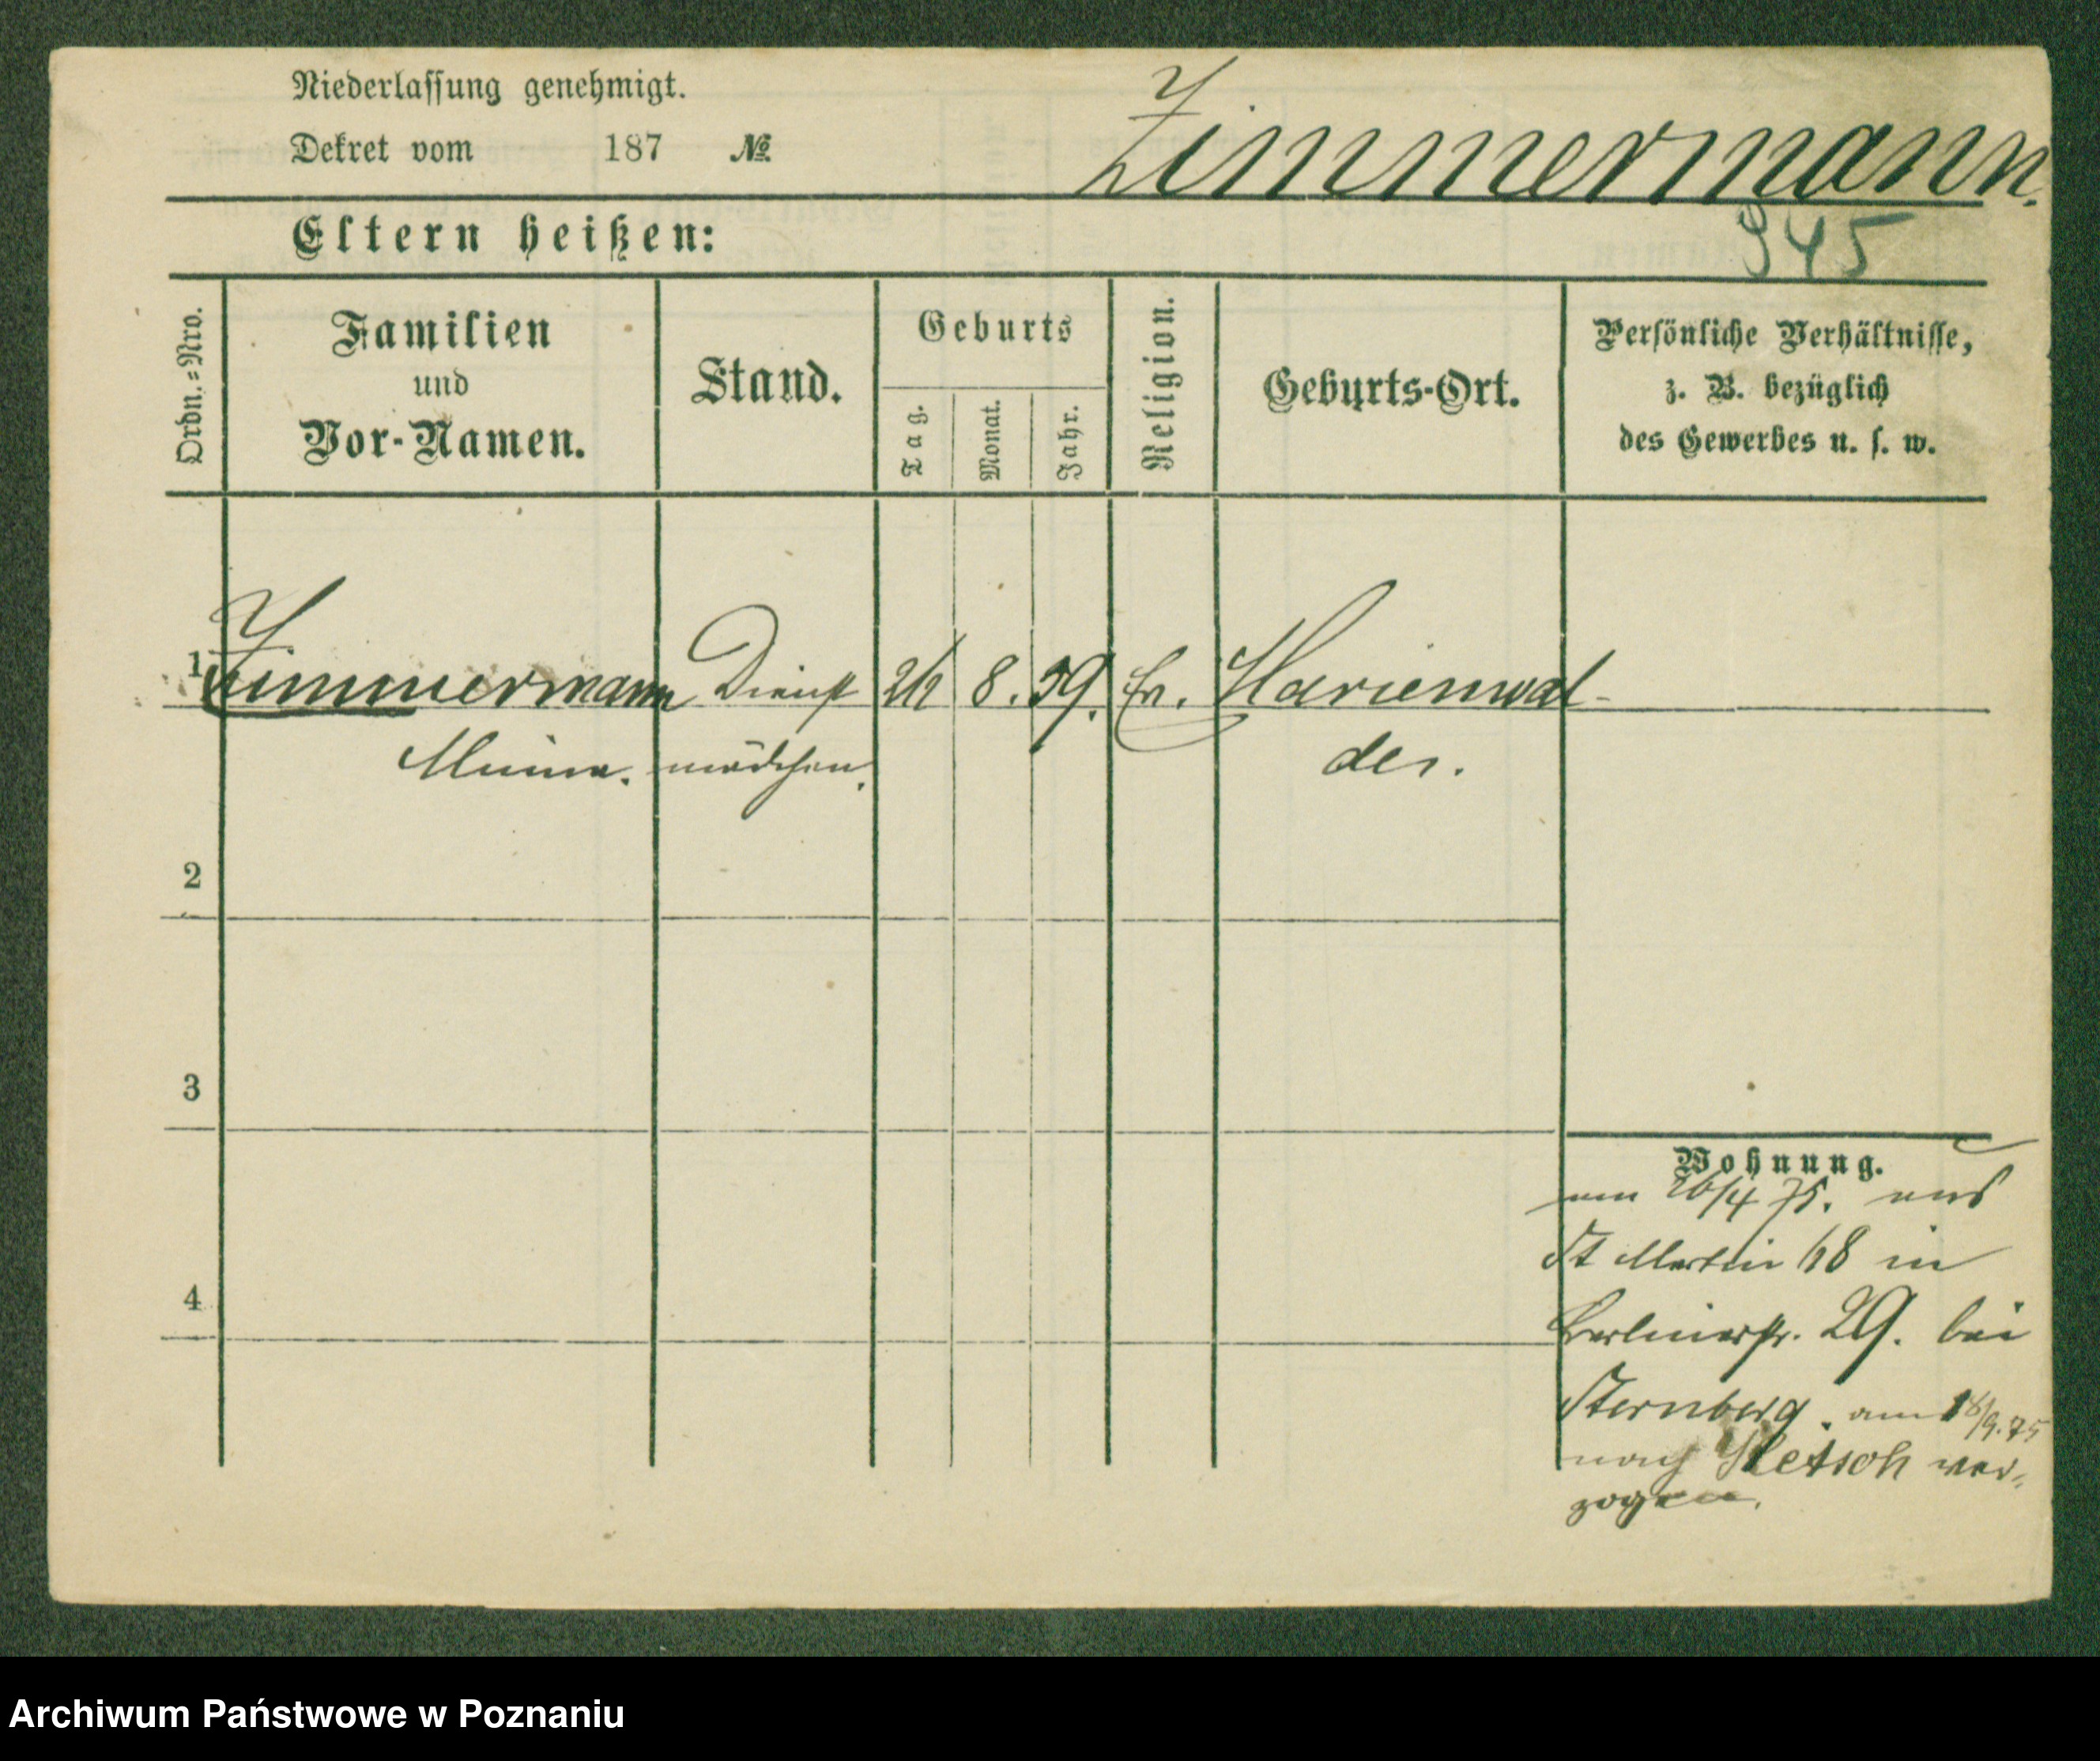 Niederlassung genehmigt.
Dekret vom 187 №
Zimmermann.
Eltern heißen:
945
Ordn.=Nro.
Familien
und
Vor-Namen.
Stand.
Geburts
Tag.
Monat.
Jahr.
Religion.
Geburts-Ort.
Persönliche Verhältnisse,
z. B. bezüglich
des Gewerbes u. s. w.
1 Zimmermann Dienst 26 8. 59. Ev. Marienwal-
Minna. mädchen. der.
2
3
4
Wohnung.
am 26/4 75. aus
St Martin 68 in
Berlinerstr. 29. bei
Sternberg. am 18/9.75
nach ver-
zogen.
Archiwum Państwowe w Poznaniu